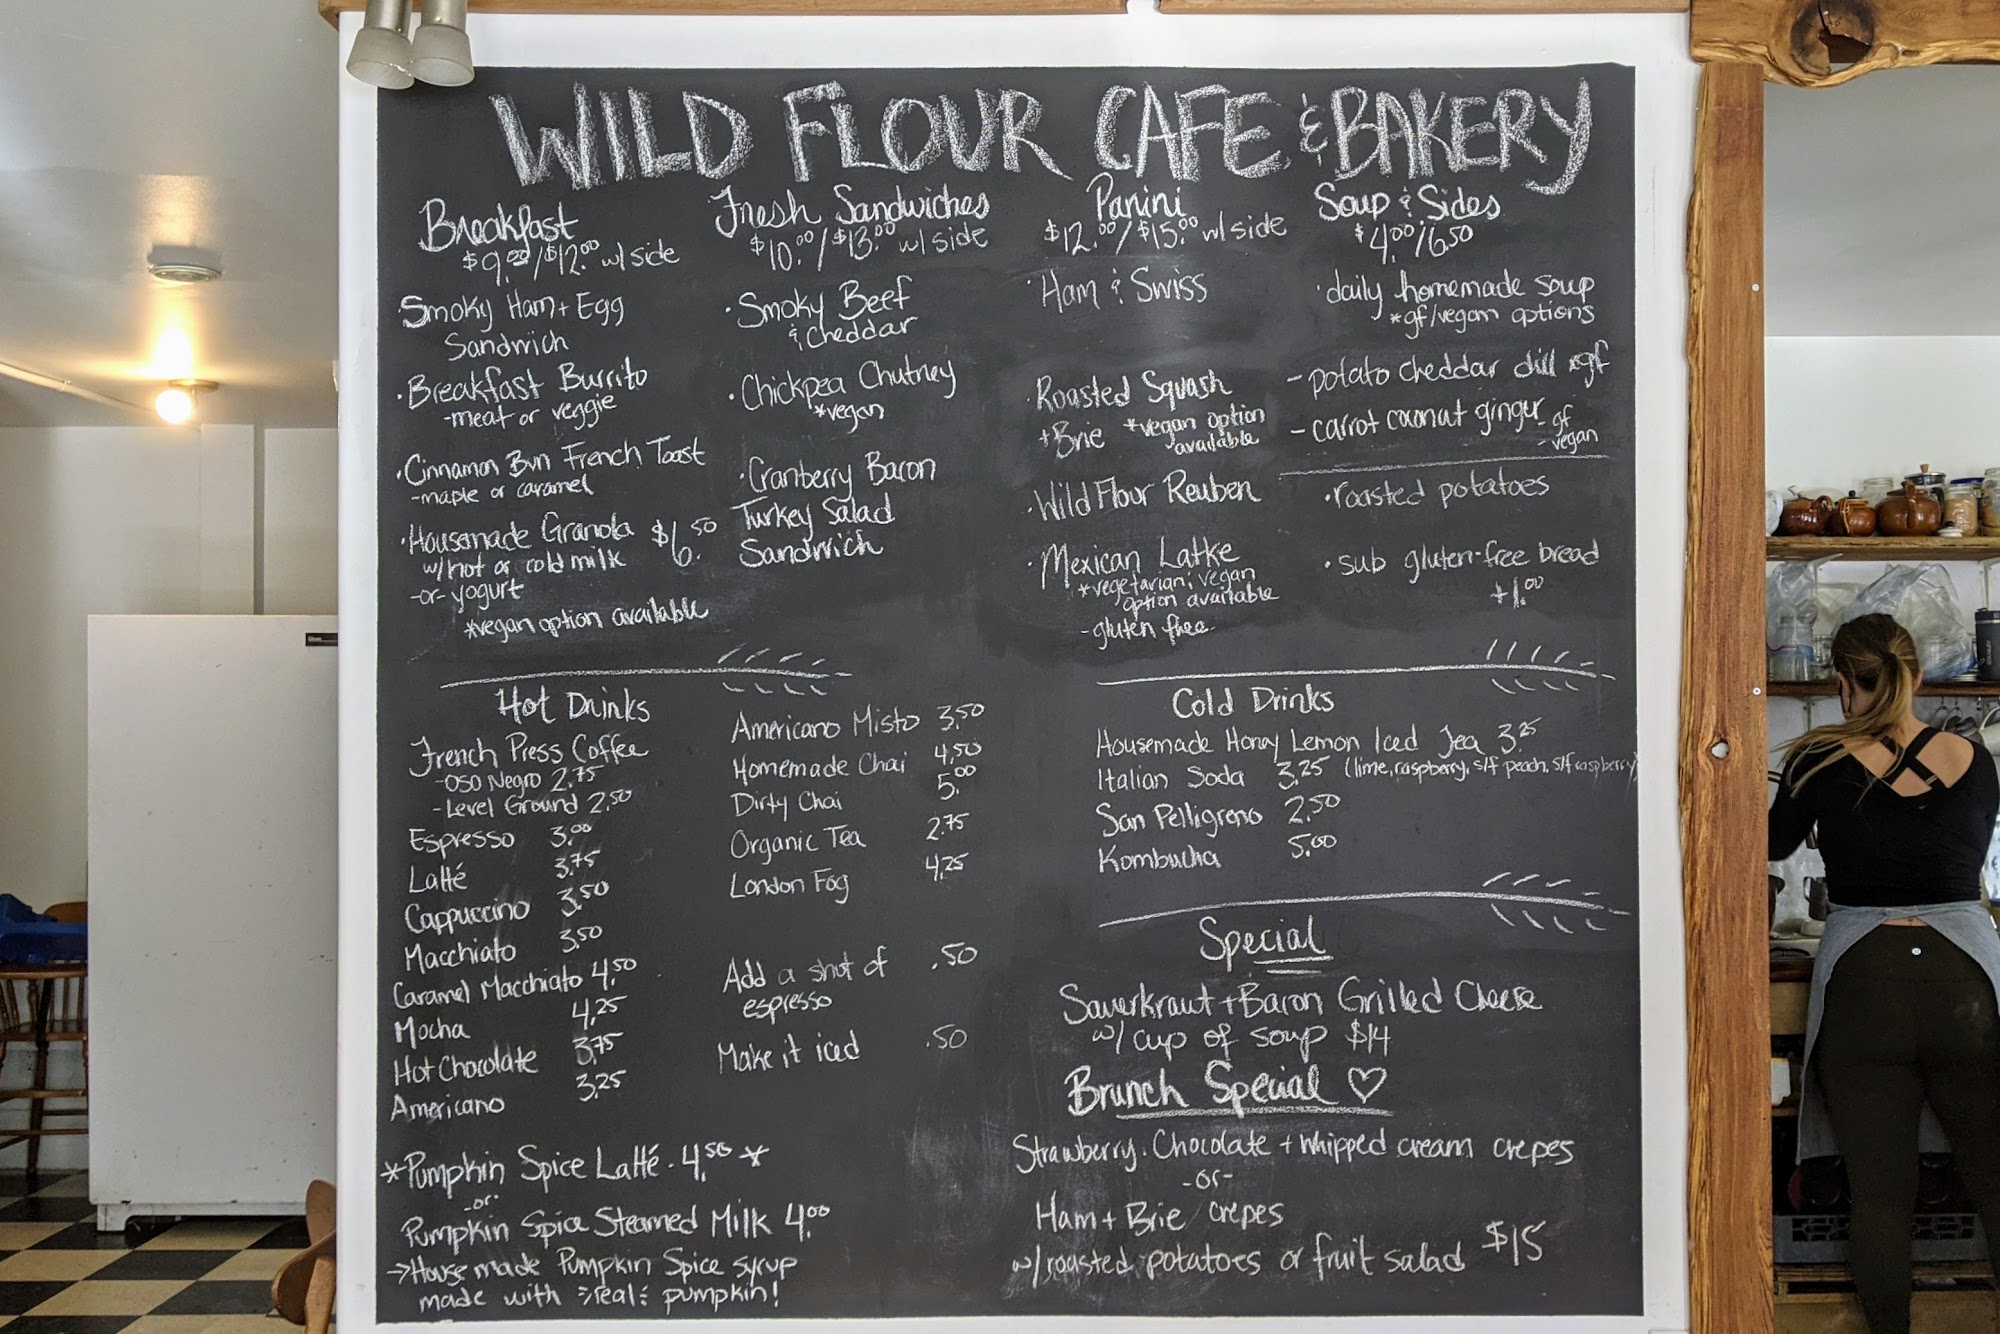 WILD FLOUR CAFE & BAKERY
Breakfast
$9.00/$12.00 w/ side
Smoky Ham + Egg
Sandwich
· Breakfast Burrito
- meat or veggie
· Cinnamon Bun French Toast
- maple or caramel
· Housemade Granola $6.50
w/ hot or cold milk
-or- yogurt
*vegan option available
Fresh Sandwiches
$10.00/$13.00 w/ side
· Smoky Beef
& Cheddar
· Chickpea Chutney
*vegan
· Cranberry Bacon
Turkey Salad
Sandwich
Panini
$12.00/$15.00 w/ side
· Ham & Swiss
· Roasted Squash
+ Brie *vegan option
available
· Wild Flour Reuben
· Mexican Latke
*vegetarian; vegan
option available
- gluten free
Soup & Sides
$4.00/6.50
· daily homemade soup
*gf/vegan options
- potato cheddar dill *gf
- carrot coconut ginger - gf
- vegan
· roasted potatoes
· sub gluten-free bread
+1.00
Hot Drinks
French Press Coffee
- Oso Negro 2.75
- Level Ground 2.50
Espresso 3.00
Latté 3.75
Cappuccino 3.50
Macchiato 3.50
Caramel Macchiato 4.50
Mocha 4.25
Hot Chocolate 3.75
Americano 3.25
Americano Misto 3.50
Homemade Chai 4.50
Dirty Chai 5.00
Organic Tea 2.75
London Fog 4.25
Add a shot of .50
espresso
Make it iced .50
*Pumpkin Spice Latté · 4.50 *
-or-
Pumpkin Spice Steamed Milk 4.00
→ House made Pumpkin Spice syrup
made with real pumpkin!
Cold Drinks
Housemade Honey Lemon Iced Tea 3.25
Italian Soda 3.25 (lime, raspberry, s/f peach, s/f raspberry)
San Pelligreno 2.50
Kombucha 5.00
Special
Sauerkraut + Bacon Grilled Cheese
w/ cup of soup $14
Brunch Special ♡
Strawberry, Chocolate + whipped cream crepes
-or-
Ham + Brie crepes
w/ roasted potatoes or fruit salad $15